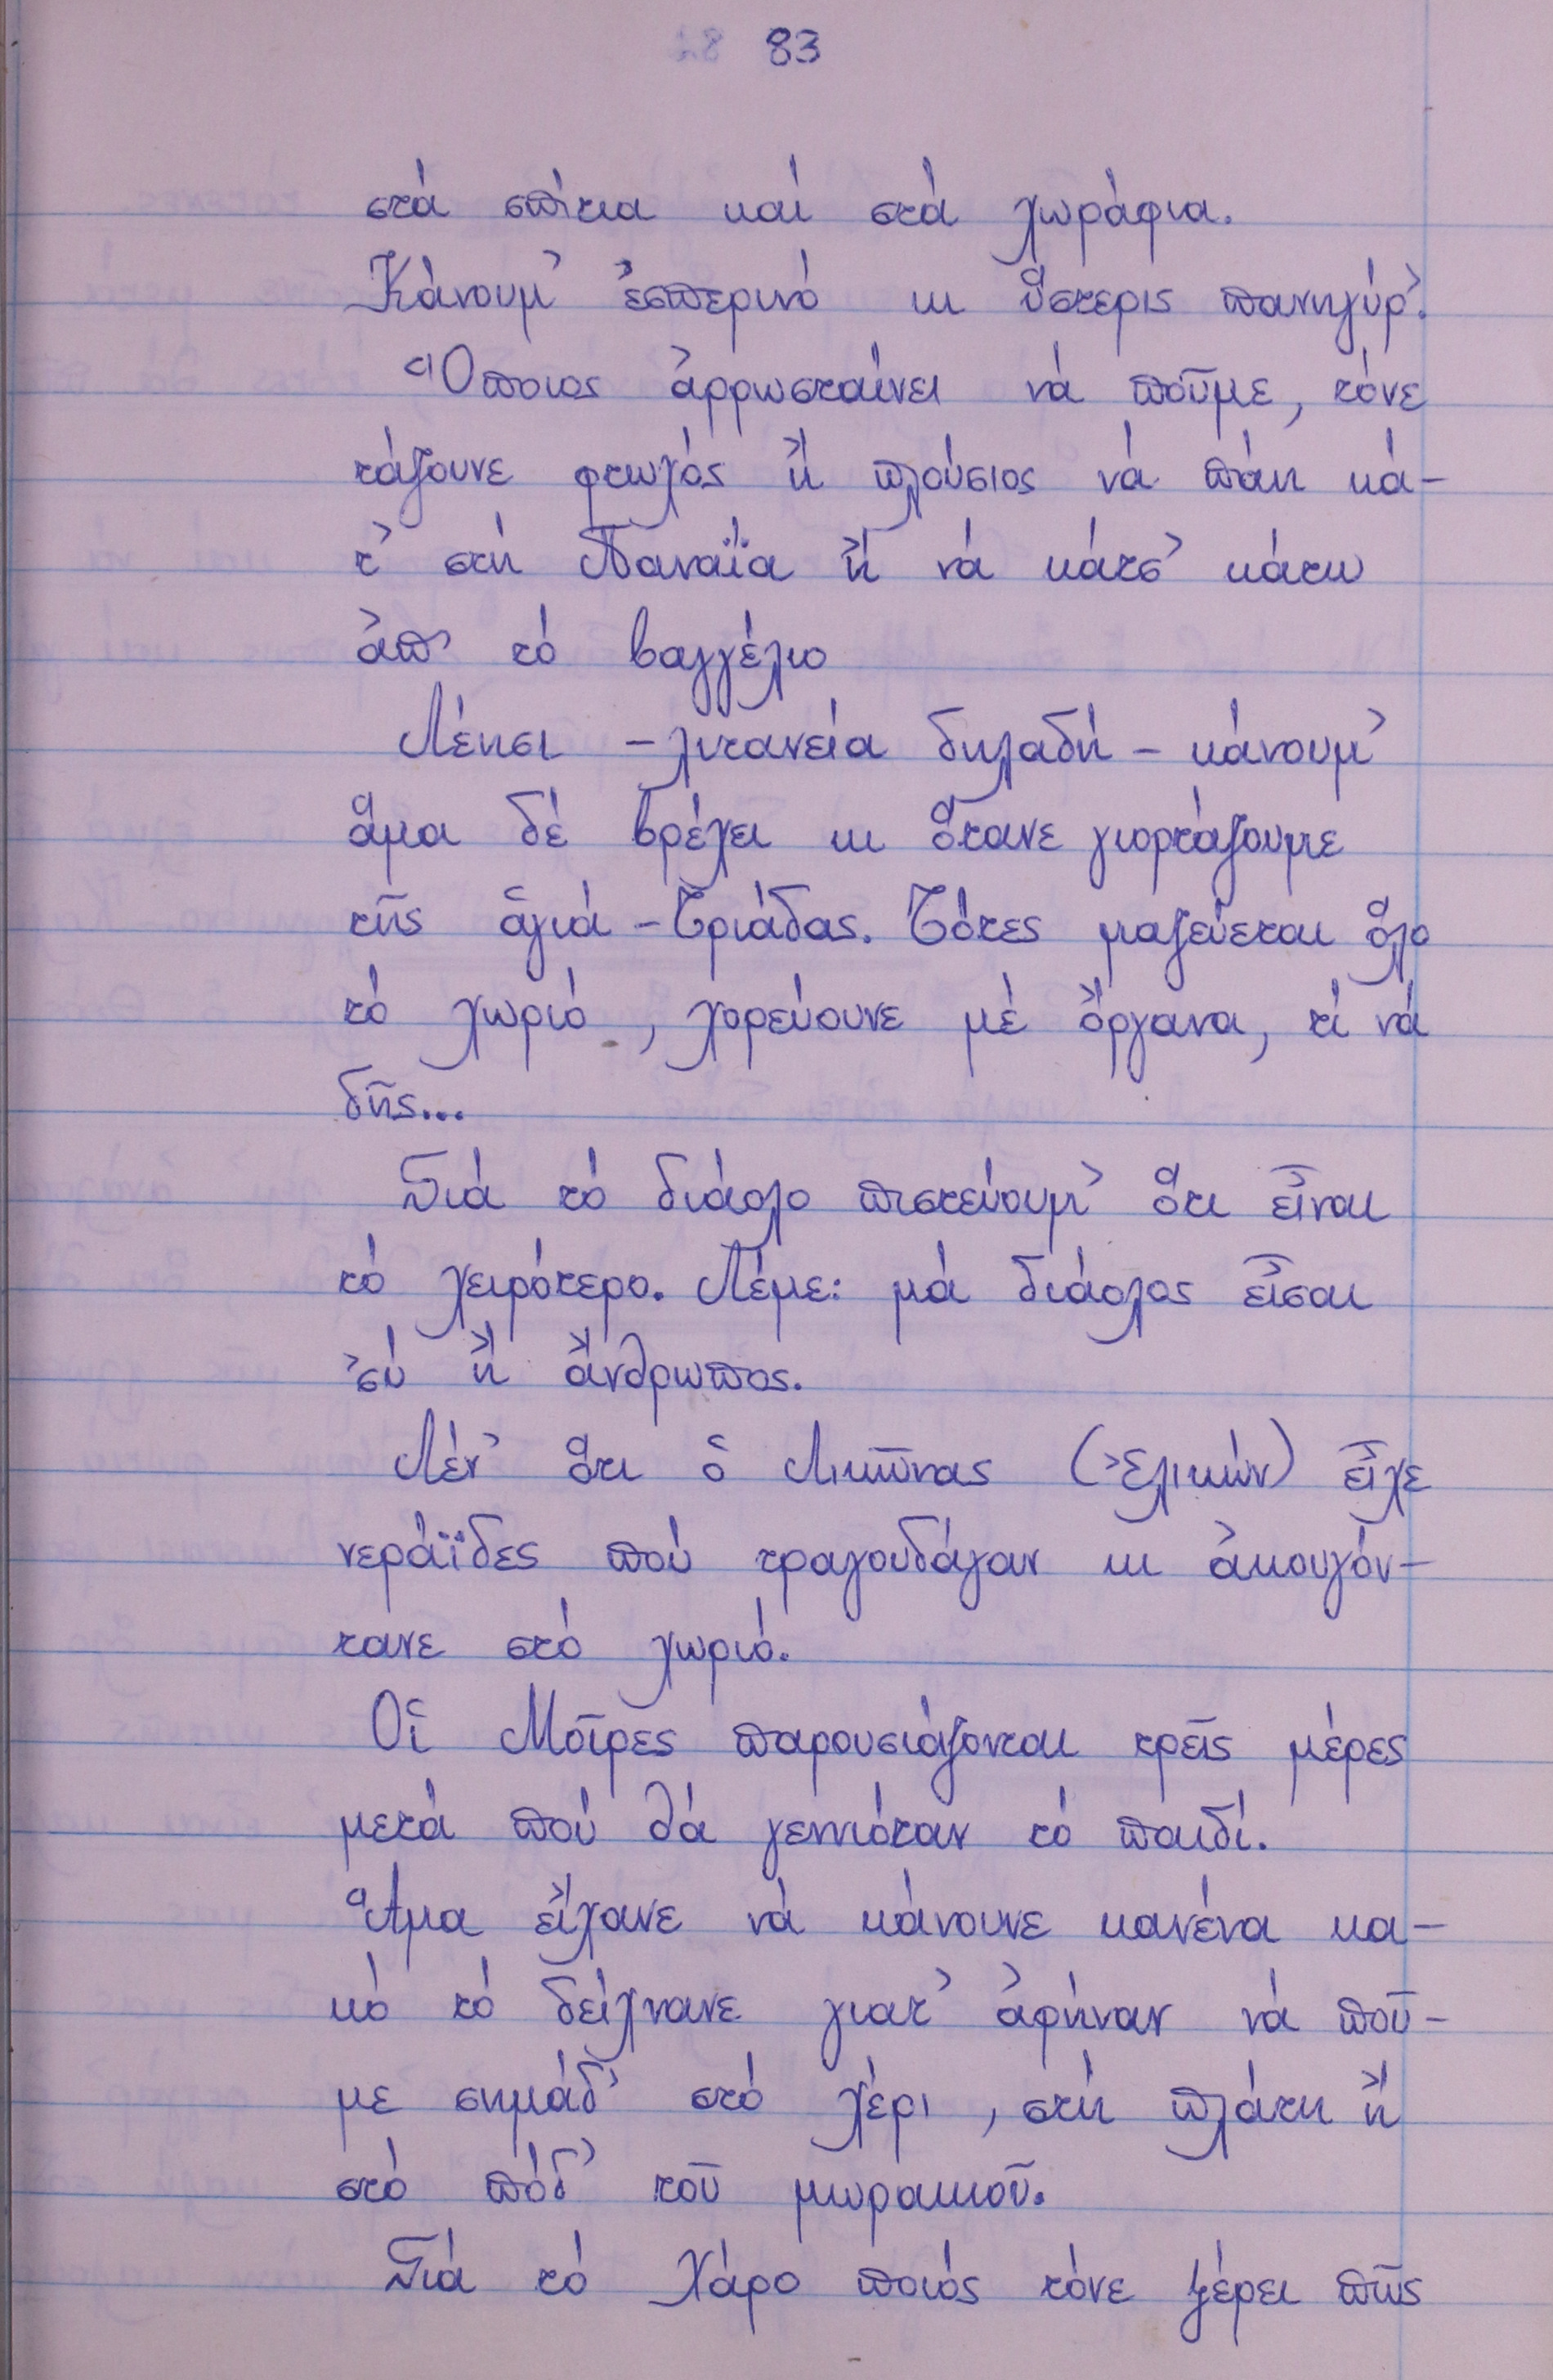 83
στά σπίτια καί στά χωράφια.
Κάνουμ᾽ ἑσπερινό κι ὕστερις πανηγύρ᾽.
Ὅποιος ἀρρωσταίνει νά ποῦμε, τόνε
τάζουνε φτωχός ἤ πλούσιος νά πάη κά-
τ᾽ στή Παναΐα ἤ νά κάτσ᾽ κάτω
ἀπ᾽ τό βαγγέλιο
Λέησι - λιτανεία δηλαδή - κάνουμ᾽
ἅμα δέ βρέχει κι ὅτανε γιορτάζουμε
τῆς ἁγιά - Τριάδας. Τότες μαζεύεται ὅλο
τό χωριό, χορεύουνε μέ ὄργανα, τί νά
δῆς...
Γιά τό διάολο πιστεύουμ᾽ ὅτι εἶναι
τό χειρότερο. Λέμε: μά διάολος εἶσαι
᾽σύ ἤ ἄνθρωπος.
Λέν᾽ ὅτι ὁ Λικῶνας (Ἑλικών) εἶχε
νεράϊδες πού τραγουδάγαν κι ἀκουγόν-
τανε στό χωριό.
Οἱ Μοῖρες παρουσιάζονται τρεῖς μέρες
μετά πού θά γεννιόταν τό παιδί.
Ἅμα εἴχανε νά κάνουνε κανένα κα-
κό τό δείχνανε γιατ᾽ ἀφήναν νά ποῦ-
με σημάδ᾽ στό χέρι, στή πλάτη ἤ
στό πόδ᾽ τοῦ μωρακιοῦ.
Γιά τό Χάρο ποιός τόνε ξέρει πῶς